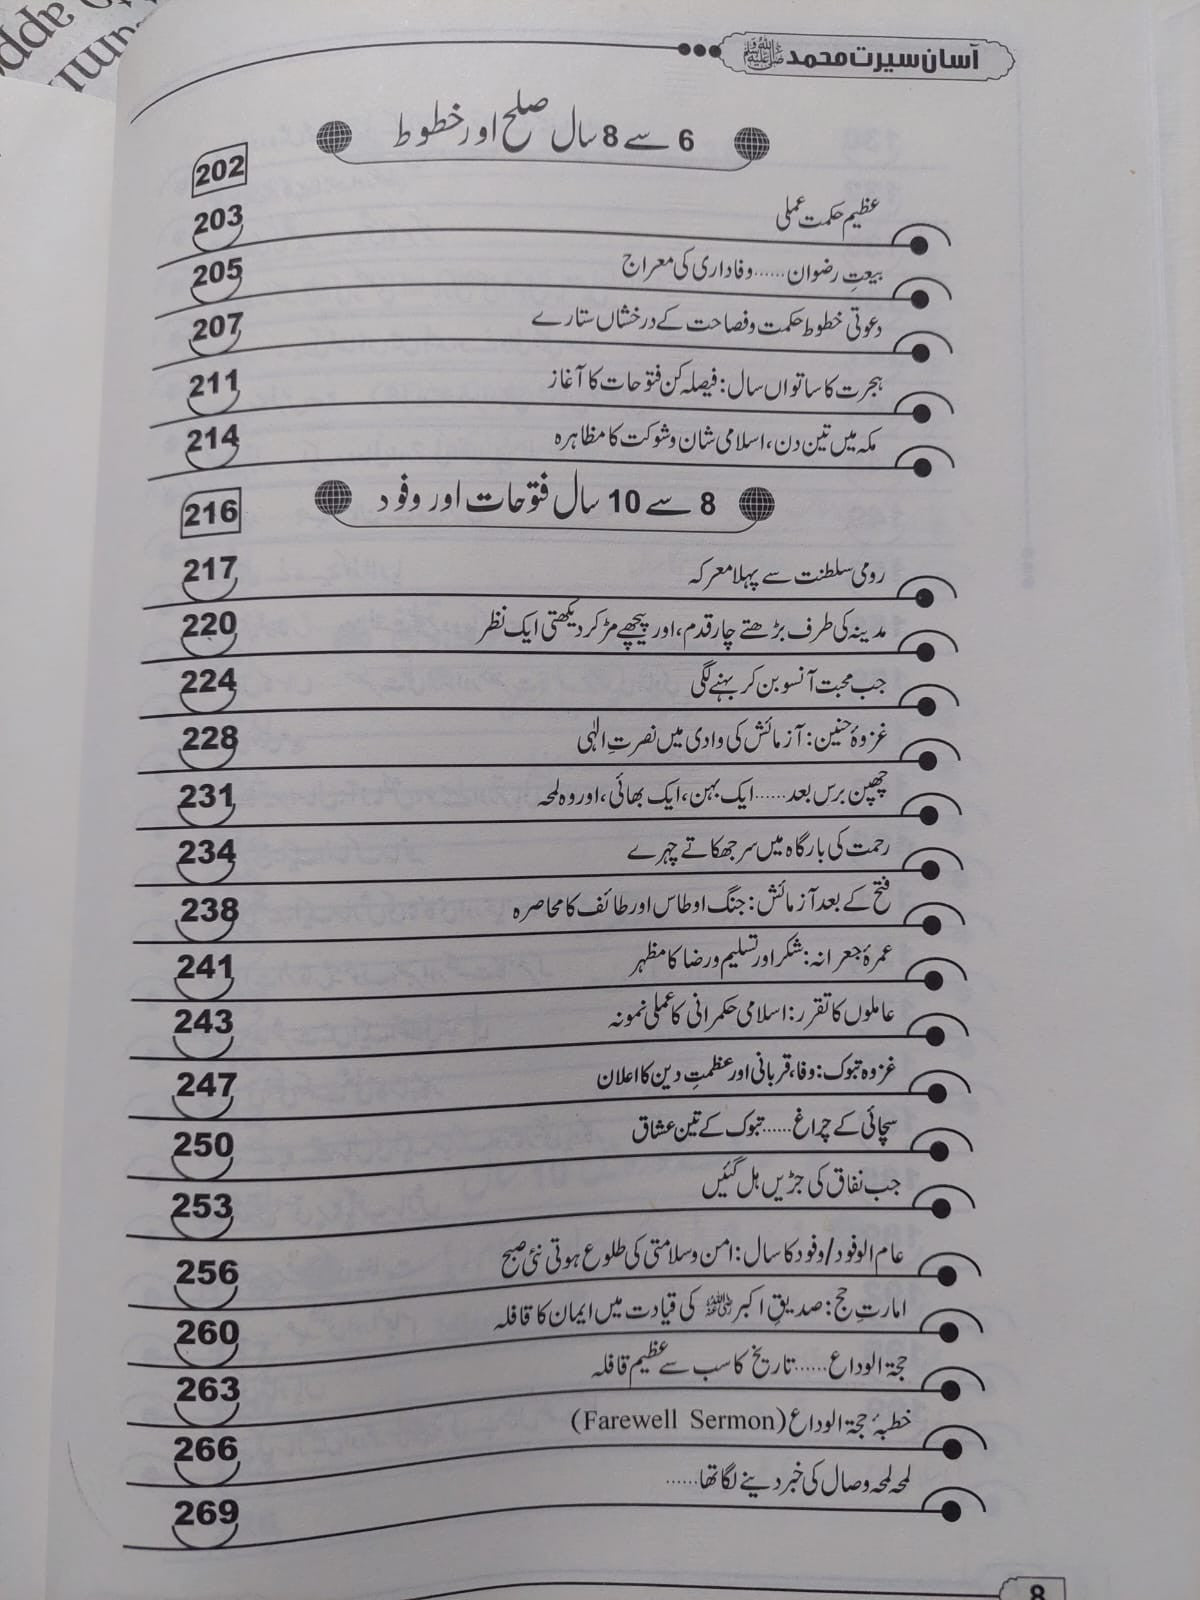 آسان سیرت محمد ﷺ
6 سے 8 سال صلح اور خطوط 202
عظیم حکمت عملی 203
بیعتِ رضوان......وفاداری کی معراج 205
دعوتی خطوط حکمت و فصاحت کے درخشاں ستارے 207
ہجرت کا ساتواں سال: فیصلہ کن فتوحات کا آغاز 211
مکہ میں تین دن، اسلامی شان و شوکت کا مظاہرہ 214
8 سے 10 سال فتوحات اور وفود 216
رومی سلطنت سے پہلا معرکہ 217
مدینہ کی طرف بڑھتے چار قدم، اور پیچھے مڑ کر دیکھتی ایک نظر 220
جب محبت آنسو بن کر بہنے لگی 224
غزوۂ حنین: آزمائش کی وادی میں نصرتِ الٰہی 228
چھپن برس بعد......ایک بہن، ایک بھائی، اور وہ لمحہ 231
رحمت کی بارگاہ میں سر جھکاتے چہرے 234
فتح کے بعد آزمائش: جنگ اوطاس اور طائف کا محاصرہ 238
عمرۂ جعرانہ: شکر اور تسلیم و رضا کا مظہر 241
عاملوں کا تقرر: اسلامی حکمرانی کا عملی نمونہ 243
غزوہ تبوک: وفا، قربانی اور عظمتِ دین کا اعلان 247
سچائی کے چراغ......تبوک کے تین عشاق 250
جب نفاق کی جڑیں ہل گئیں 253
عام الوفود/وفود کا سال: امن و سلامتی کی طلوع ہوتی نئی صبح 256
امارتِ حج: صدیقِ اکبر رضی اللہ عنہ کی قیادت میں ایمان کا قافلہ 260
حجۃ الوداع......تاریخ کا سب سے عظیم قافلہ 263
خطبۂ حجۃ الوداع (Farewell Sermon) 266
لمحہ لمحہ وصال کی خبر دینے لگا تھا...... 269
8